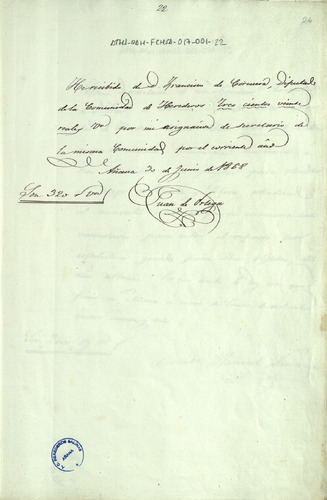 22
24
ATHA-DAH-FCHSA-017-001-22
He recibido de Dn Francisco de Corcuera, Diputado
de la Comunidad de Herederos tres cientos veinte
reales Vn por mi asignacion de Secretario de
la misma Comunidad por el corriente año
Añana 30 de Junio de 1868
Son 320 rs vn
Juan de Ortega
AÑANA